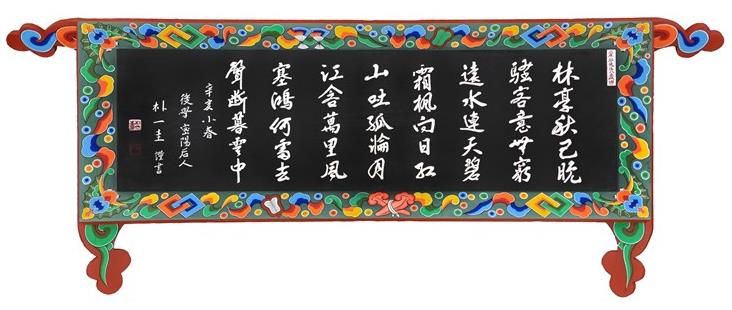 林亭秋已晚
騷客意無窮
遠水連天碧
霜楓向日紅
山吐孤輪月
江含萬里風
塞鴻何處去
聲斷暮雲中
辛亥小春
後學密陽后人
朴一圭 謹書